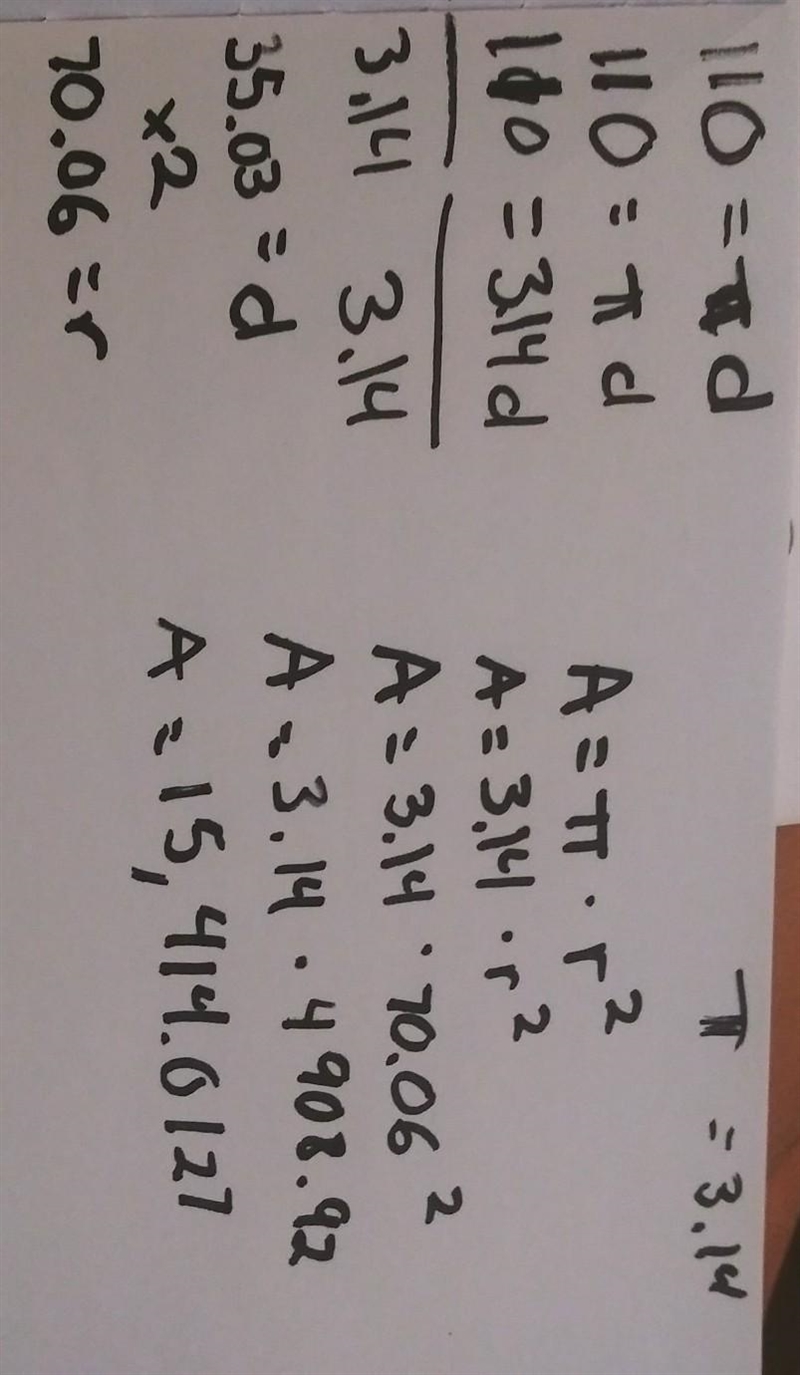 110 = πd
110 = πd
110 = 3.14d
3.14 3.14
35.03 = d
x2
70.06 = r
π = 3.14
A = π · r²
A = 3.14 · r²
A = 3.14 · 70.06²
A = 3.14 · 4908.92
A = 15,414.0127